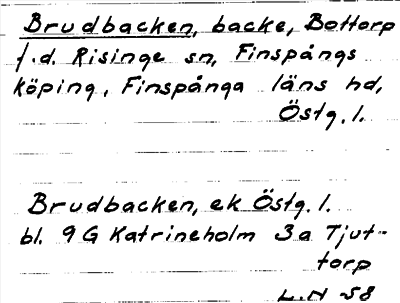 Brudbacken, backe, Bottorp
f.d. Risinge sn, Finspångs
köping, Finspånga läns hd,
Östg. l.
Brudbacken, ek Östg. l.
bl. 9 G Katrineholm 3a Tjut-
torp
L.N 58